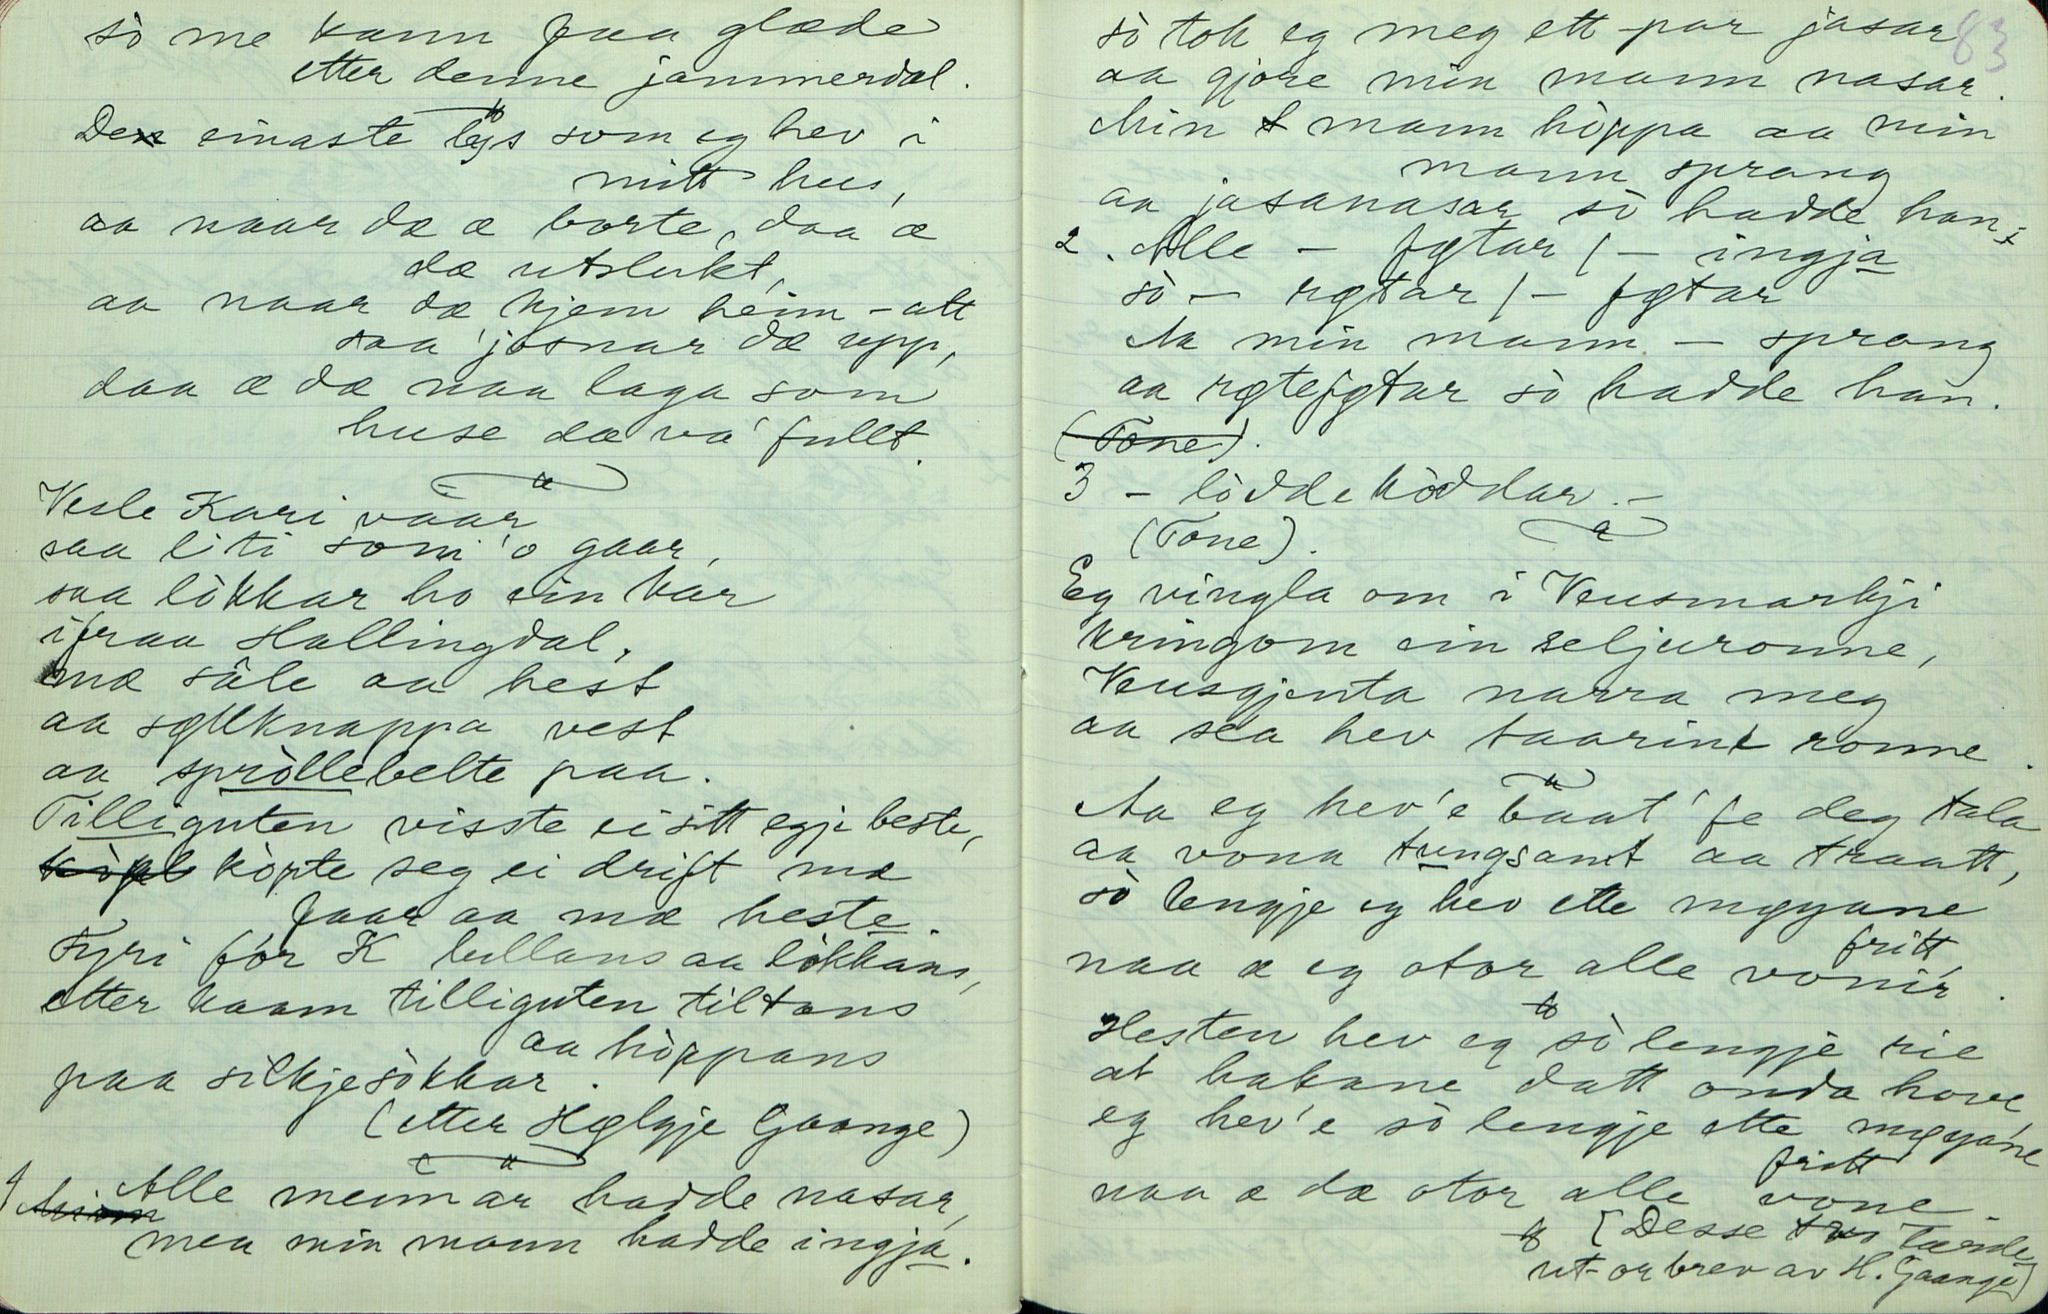 sò me kann faa glæde
etter denne jammerdal.
De einaste ljs som eg hev i
mitt hus,
aa naar dæ æ borte, daa æ
dæ utslukt,
aa naar dæ kjem heim-att
saa josnar dæ upp,
daa æ dæ naa laga som
huse dæ va' fullt.
Vesle Kari vaar
saa liti som 'o gaar,
saa lòkkar ho ein kar
ifraa Hallingdal,
mæ sâle aa hest
aa sylvknappa vest
aa spròllebelte paa.
Tilliguten visste ei sitt egje beste,
kòpte seg ei drift mæ
faar aa mæ heste.
Fyri fór K lullans aa lokkans,
etter kaam tilliguten tiltans
aa hòppans
paa silkjesòkkar.
(etter Hælgje Gaange)
1 Alle mennar hadde nasar,
men min mann hadde ingja.
83
sò tok eg meg ett par jasar
aa gjore min mann nasar.
Min mann hòppa aa min
mann sprang
aa jasanasar sò hadde han.
2. Alle – føtar / – ingja
sò – røtar / – føtar
Aa min mann – sprang
aa røteføtar sò hadde han.
(Tone).
3 – lòddehòddar. –
(Tone).
Eg vingla om i Veusmarkji
kringom ein seljuronne,
Veusgjenta narra meg
aa sea hev taarint ronne.
Aa eg hev 'e baat' fe deg tala
aa vona tungsamt aa traatt,
sò lengje eg hev ette møyane
fritt,
naa æ eg otor alle vonir.
Hesten hev eg sò lengje rie
at hakane datt onda hove
eg hev'e sò lengje ette møyane
fritt
naa æ dæ otor alle vone.
[Desse
ut-or brev av H. Gaange]